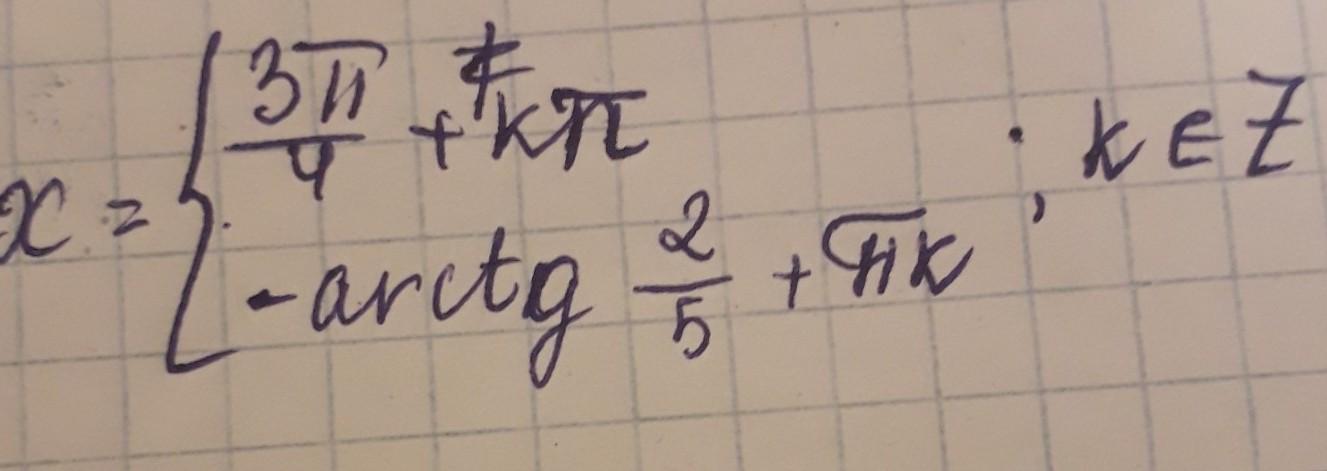 x = { 3π/4 + kπ
-arctg 2/5 + πk ; k ∈ Z